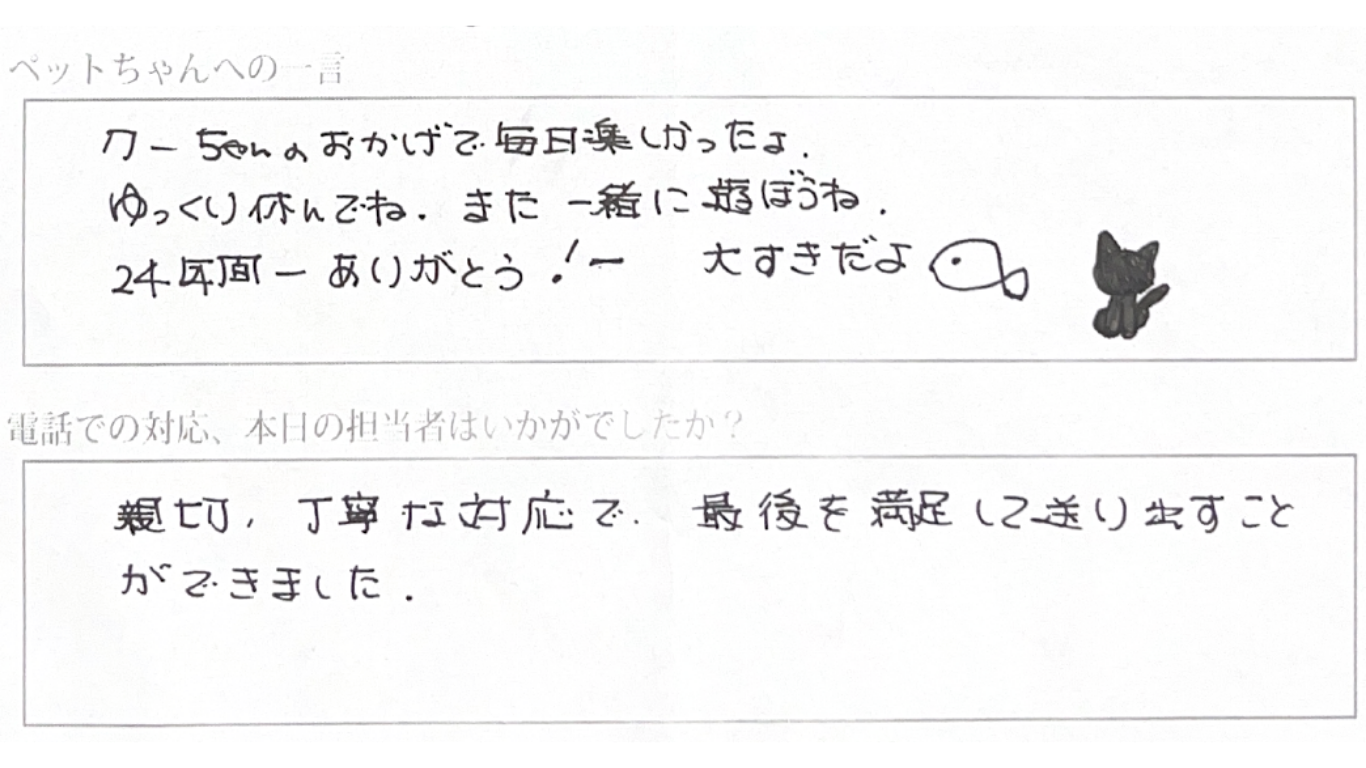 ペットちゃんへの一言
クーちゃんのおかげで毎日楽しかったよ.
ゆっくり休んでね. また 一緒に 遊ぼうね.
24年間ー ありがとう!ー 大すきだよ
電話での対応、本日の担当者はいかがでしたか?
親切, 丁寧な対応で. 最後を満足して送り出すこと
ができました.